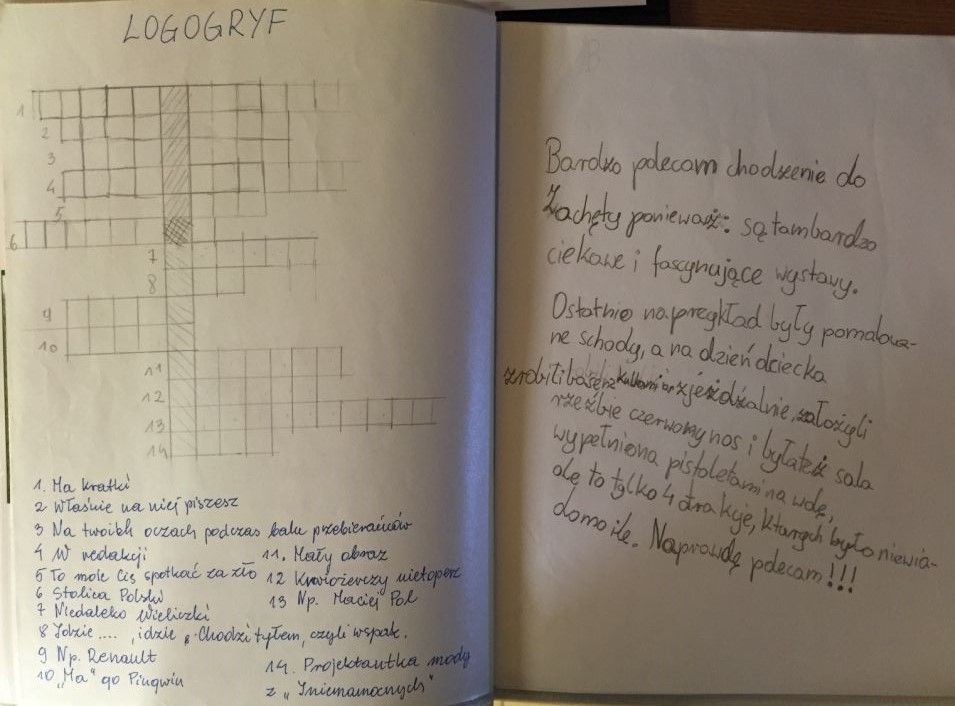 LOGOGRYF
1
2
3
4
5
6
7
8
9
10
11
12
13
14
1. Ma kratki
2 Właśnie na niej piszesz
3 Na twoich oczach podczas balu przebierańców
4 W redakcji
5 To może Cię spotkać za zło
6 Stolica Polski
7 Niedaleko Wieliczki
8 Idzie .... , idzie , Chodzi tyłem, czyli wspak.
9 Np. Renault
10 „Ma" go Pingwin
11. Mały obraz
12 Krwiożerczy nietoperz
13 Np. Maciej Pol
14. Projektantka mody
z „Iniemamocnych"
Bardzo polecam chodzenie do
Zachęty ponieważ: są tam bardzo
ciekawe i fascynujące wystawy.
Ostatnio na pregkład były pomalowa-
ne schody, a na dzień dziecka
zrobili basen z kulkami zjeżdżalnie, założyli
rzeźbie czerwony nos i była też sala
wypełniona pistoletami na wdę,
ale to tylko 4 atrakcje, ktarych było niewia-
domo ile. Naprawdę polecam!!!